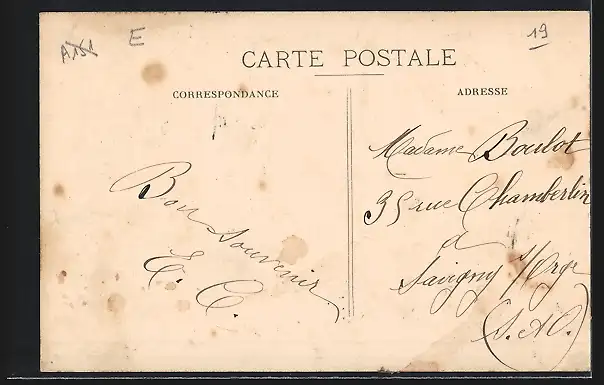 A151 E 19
CARTE POSTALE
CORRESPONDANCE
ADRESSE
Bon Souvenir
E. C.
Madame Boulot
35 rue Chamberlin
à
Savigny s/Orge
(S. et O.)